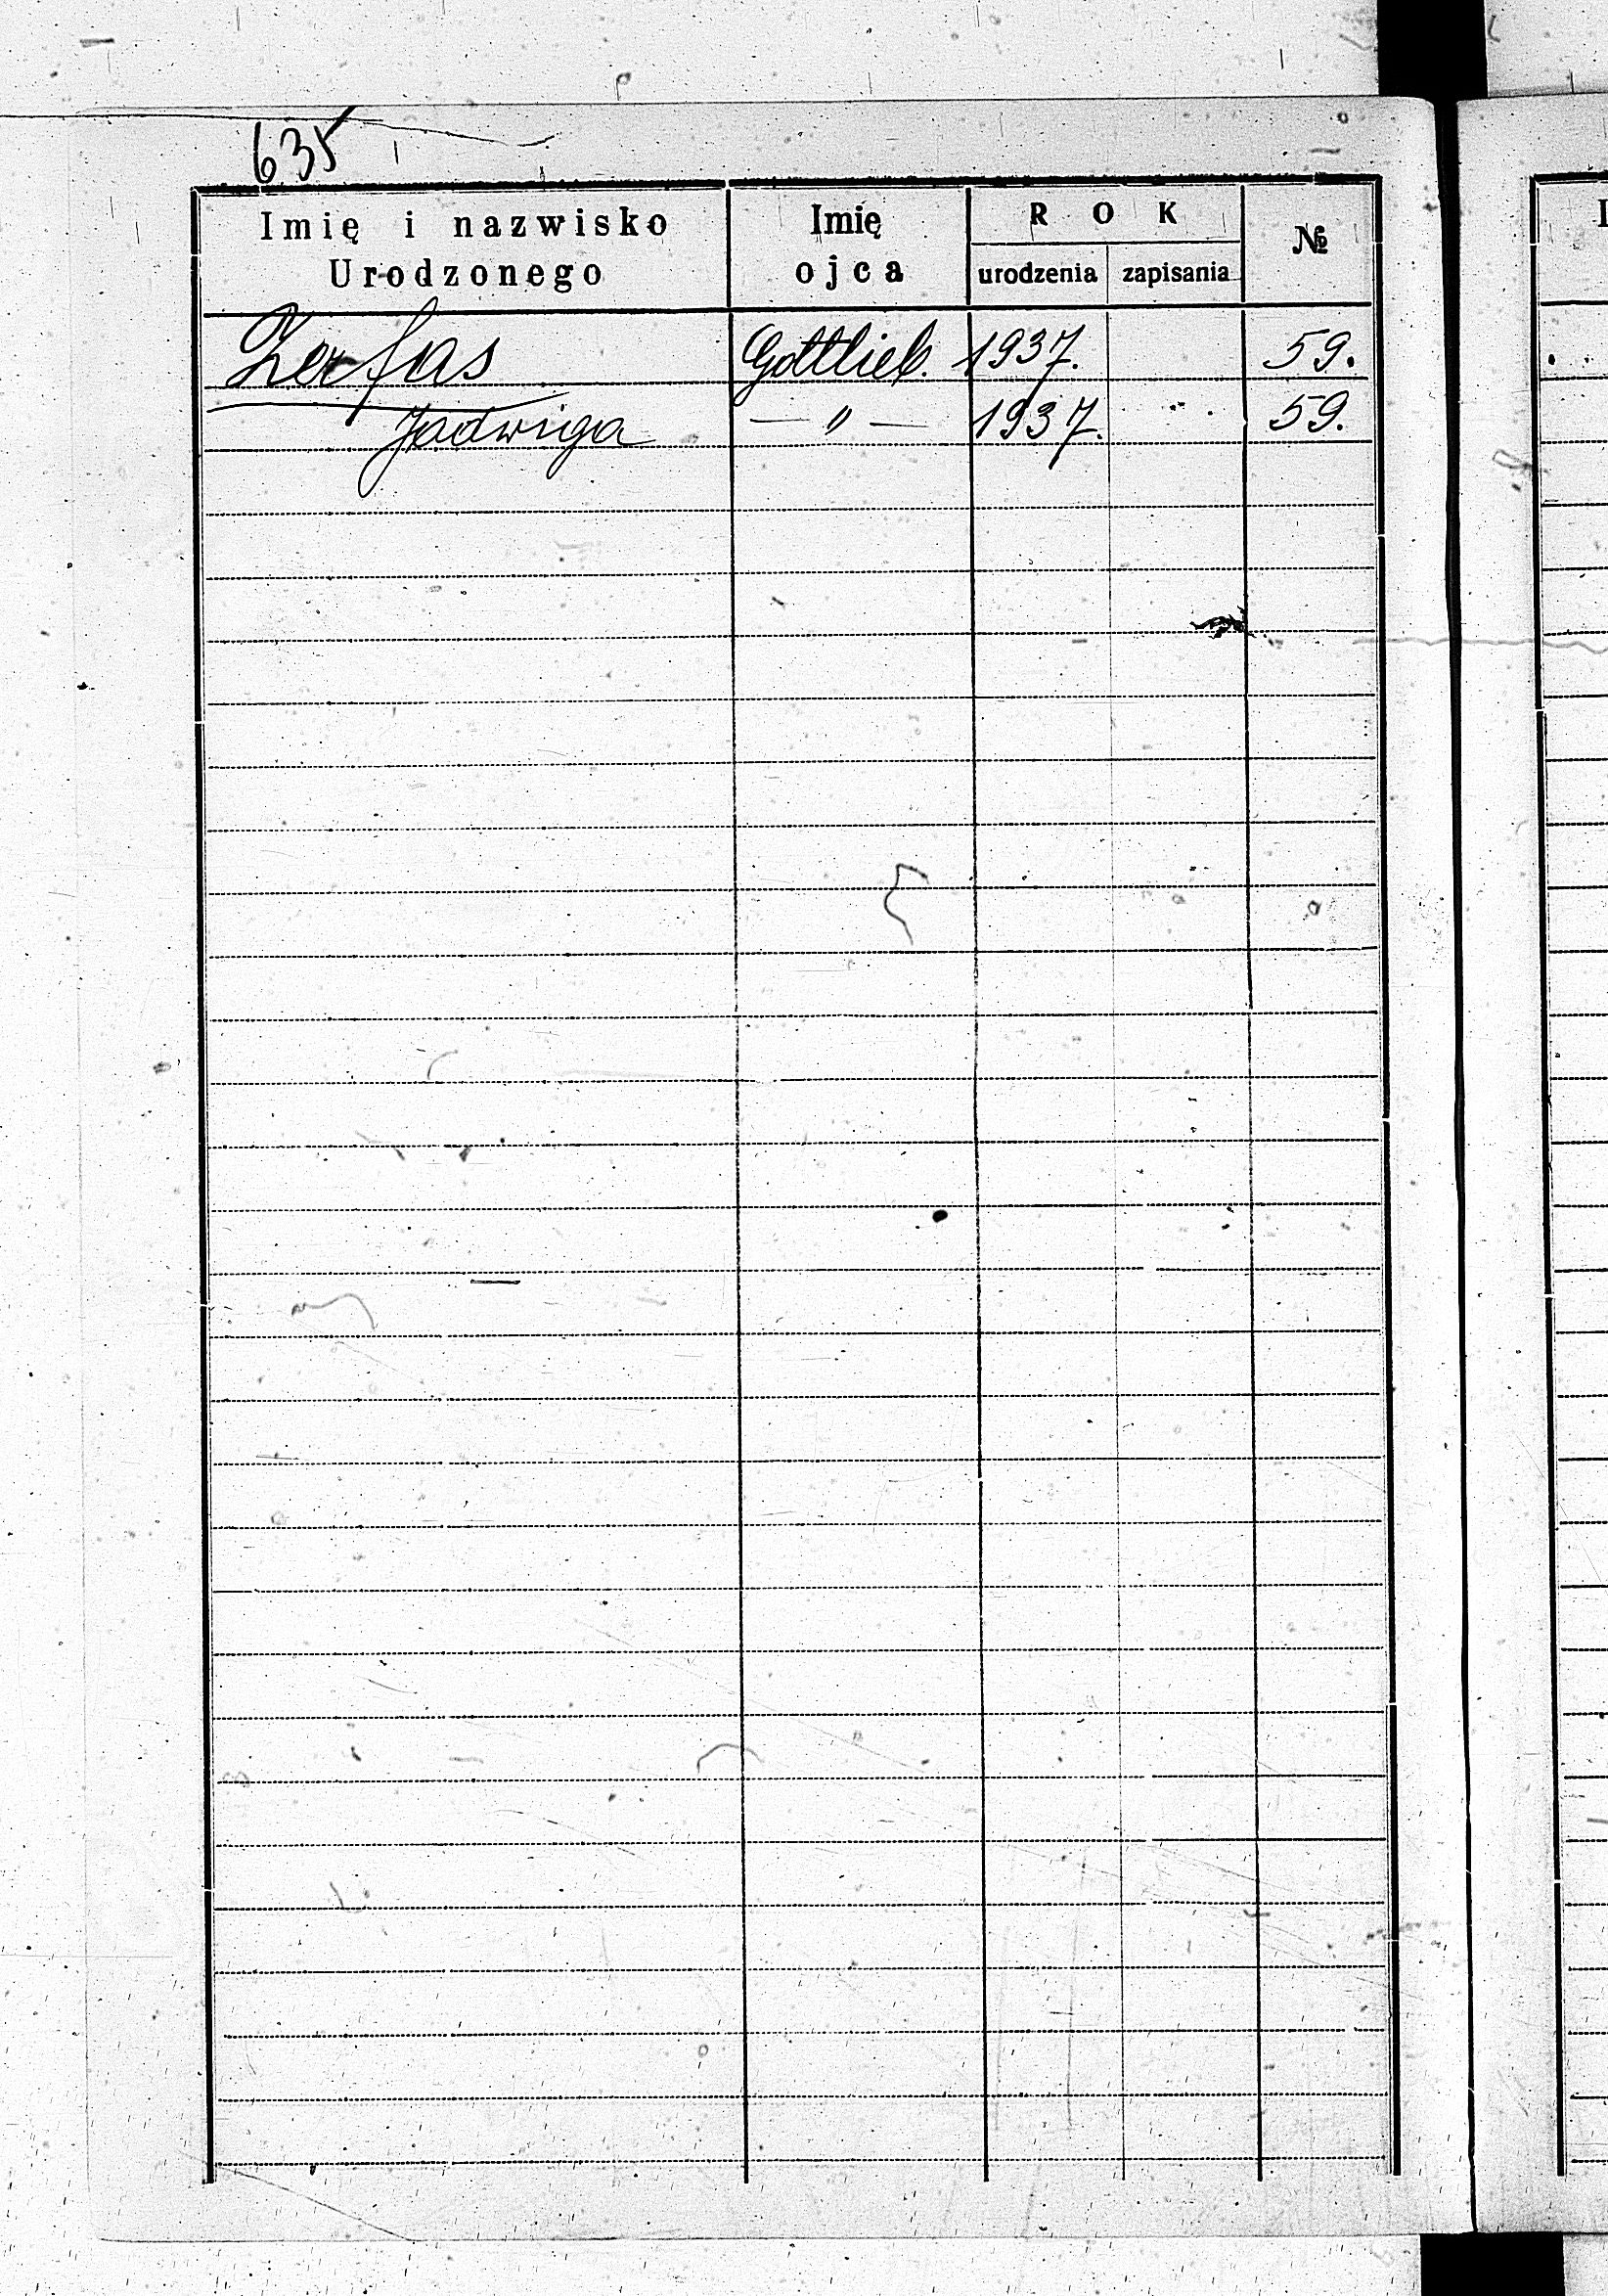 635
Imię i nazwisko Urodzonego | Imię ojca | ROK urodzenia | zapisania | №
Zerfas | Gottlieb. | 1937. | | 59.
Jadwiga | — " — | 1937. | | 59.